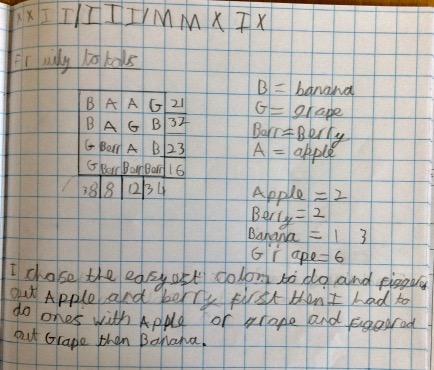 XXII/III/MMXIX
Fruity totals
B A A G 21
B A G B 32
G Berr A B 23
G Berr Berr Berr 16
38 8 12 34
B = banana
G = grape
Berr = Berry
A = apple
Apple = 2
Berry = 2
Banana = 1 3
Grape = 6
I chose the easyest colom to do and figgerd
out Apple and berry first then I had to
do ones with Apple or grape and figgered
out Grape then Banana.